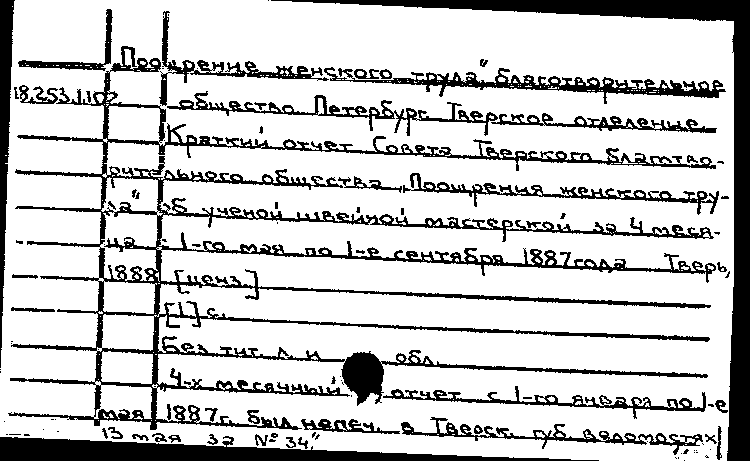 „Поощрение женского труда", благотворительное
18.253.1.102 общество Петербург. Тверское отделение.
Краткий отчет Совета Тверского благотво-
рительного общества „Поощрения женского тру-
да" об ученой швейной мастерской за 4 меся-
ца с 1-го мая по 1-е сентября 1887 года Тверь,
1888 [ценз.]
[1] с.
Без тит. л. и обл.
„4-х месячный отчет с 1-го января по 1-е
мая 1887 г. был напеч. в Тверск. губ. ведомостях
13 мая за № 34."